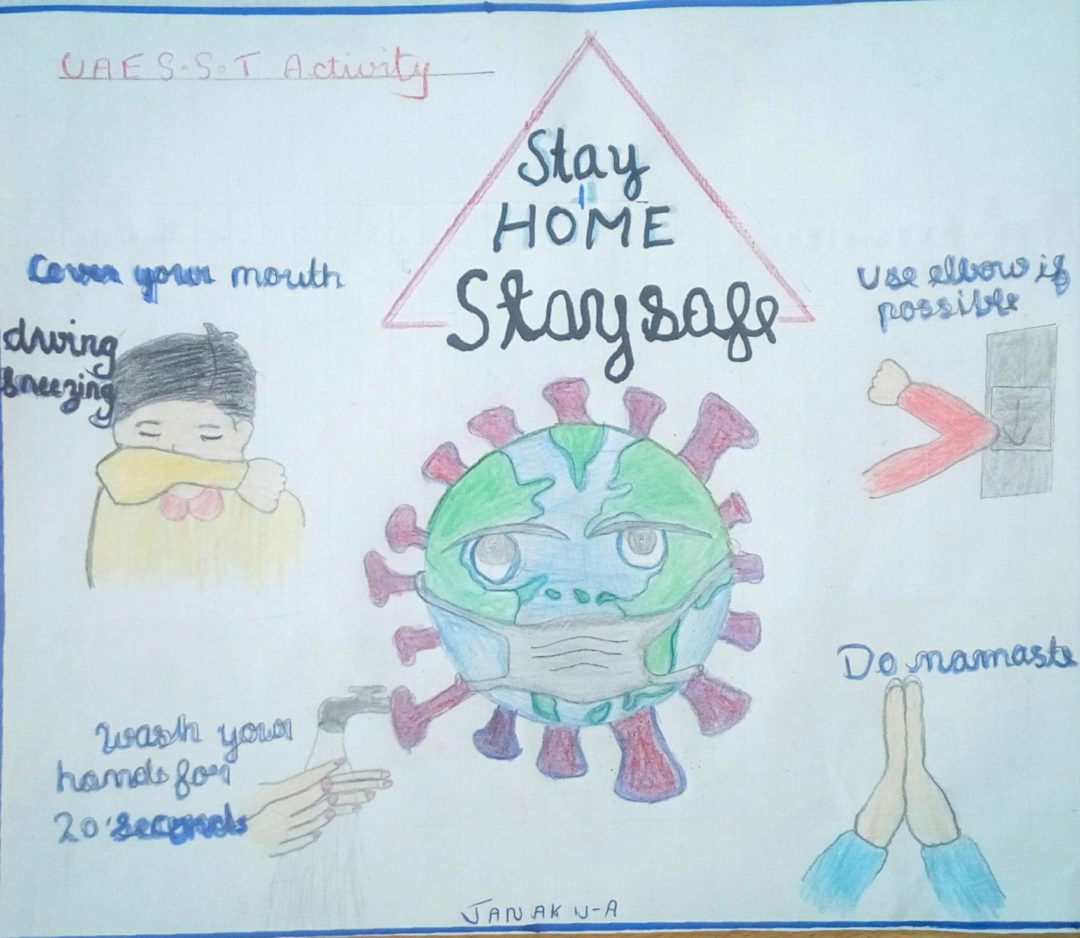 UAE S.S.T Activity
Stay
HOME
Stay safe
Cover your mouth
during
sneezing
Use elbow if
possible
Do namaste
wash your
hands for
20 seconds
JANAK